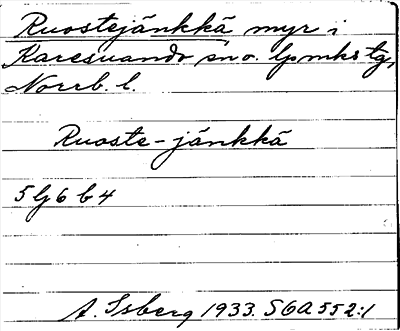 Ruostejänkkä myr i
Karesuando sn o. lpmkstg,
Norrb. l.
Ruoste-jänkkä
5 G 6 b 4
A. Isberg 1933. SGA 552:1